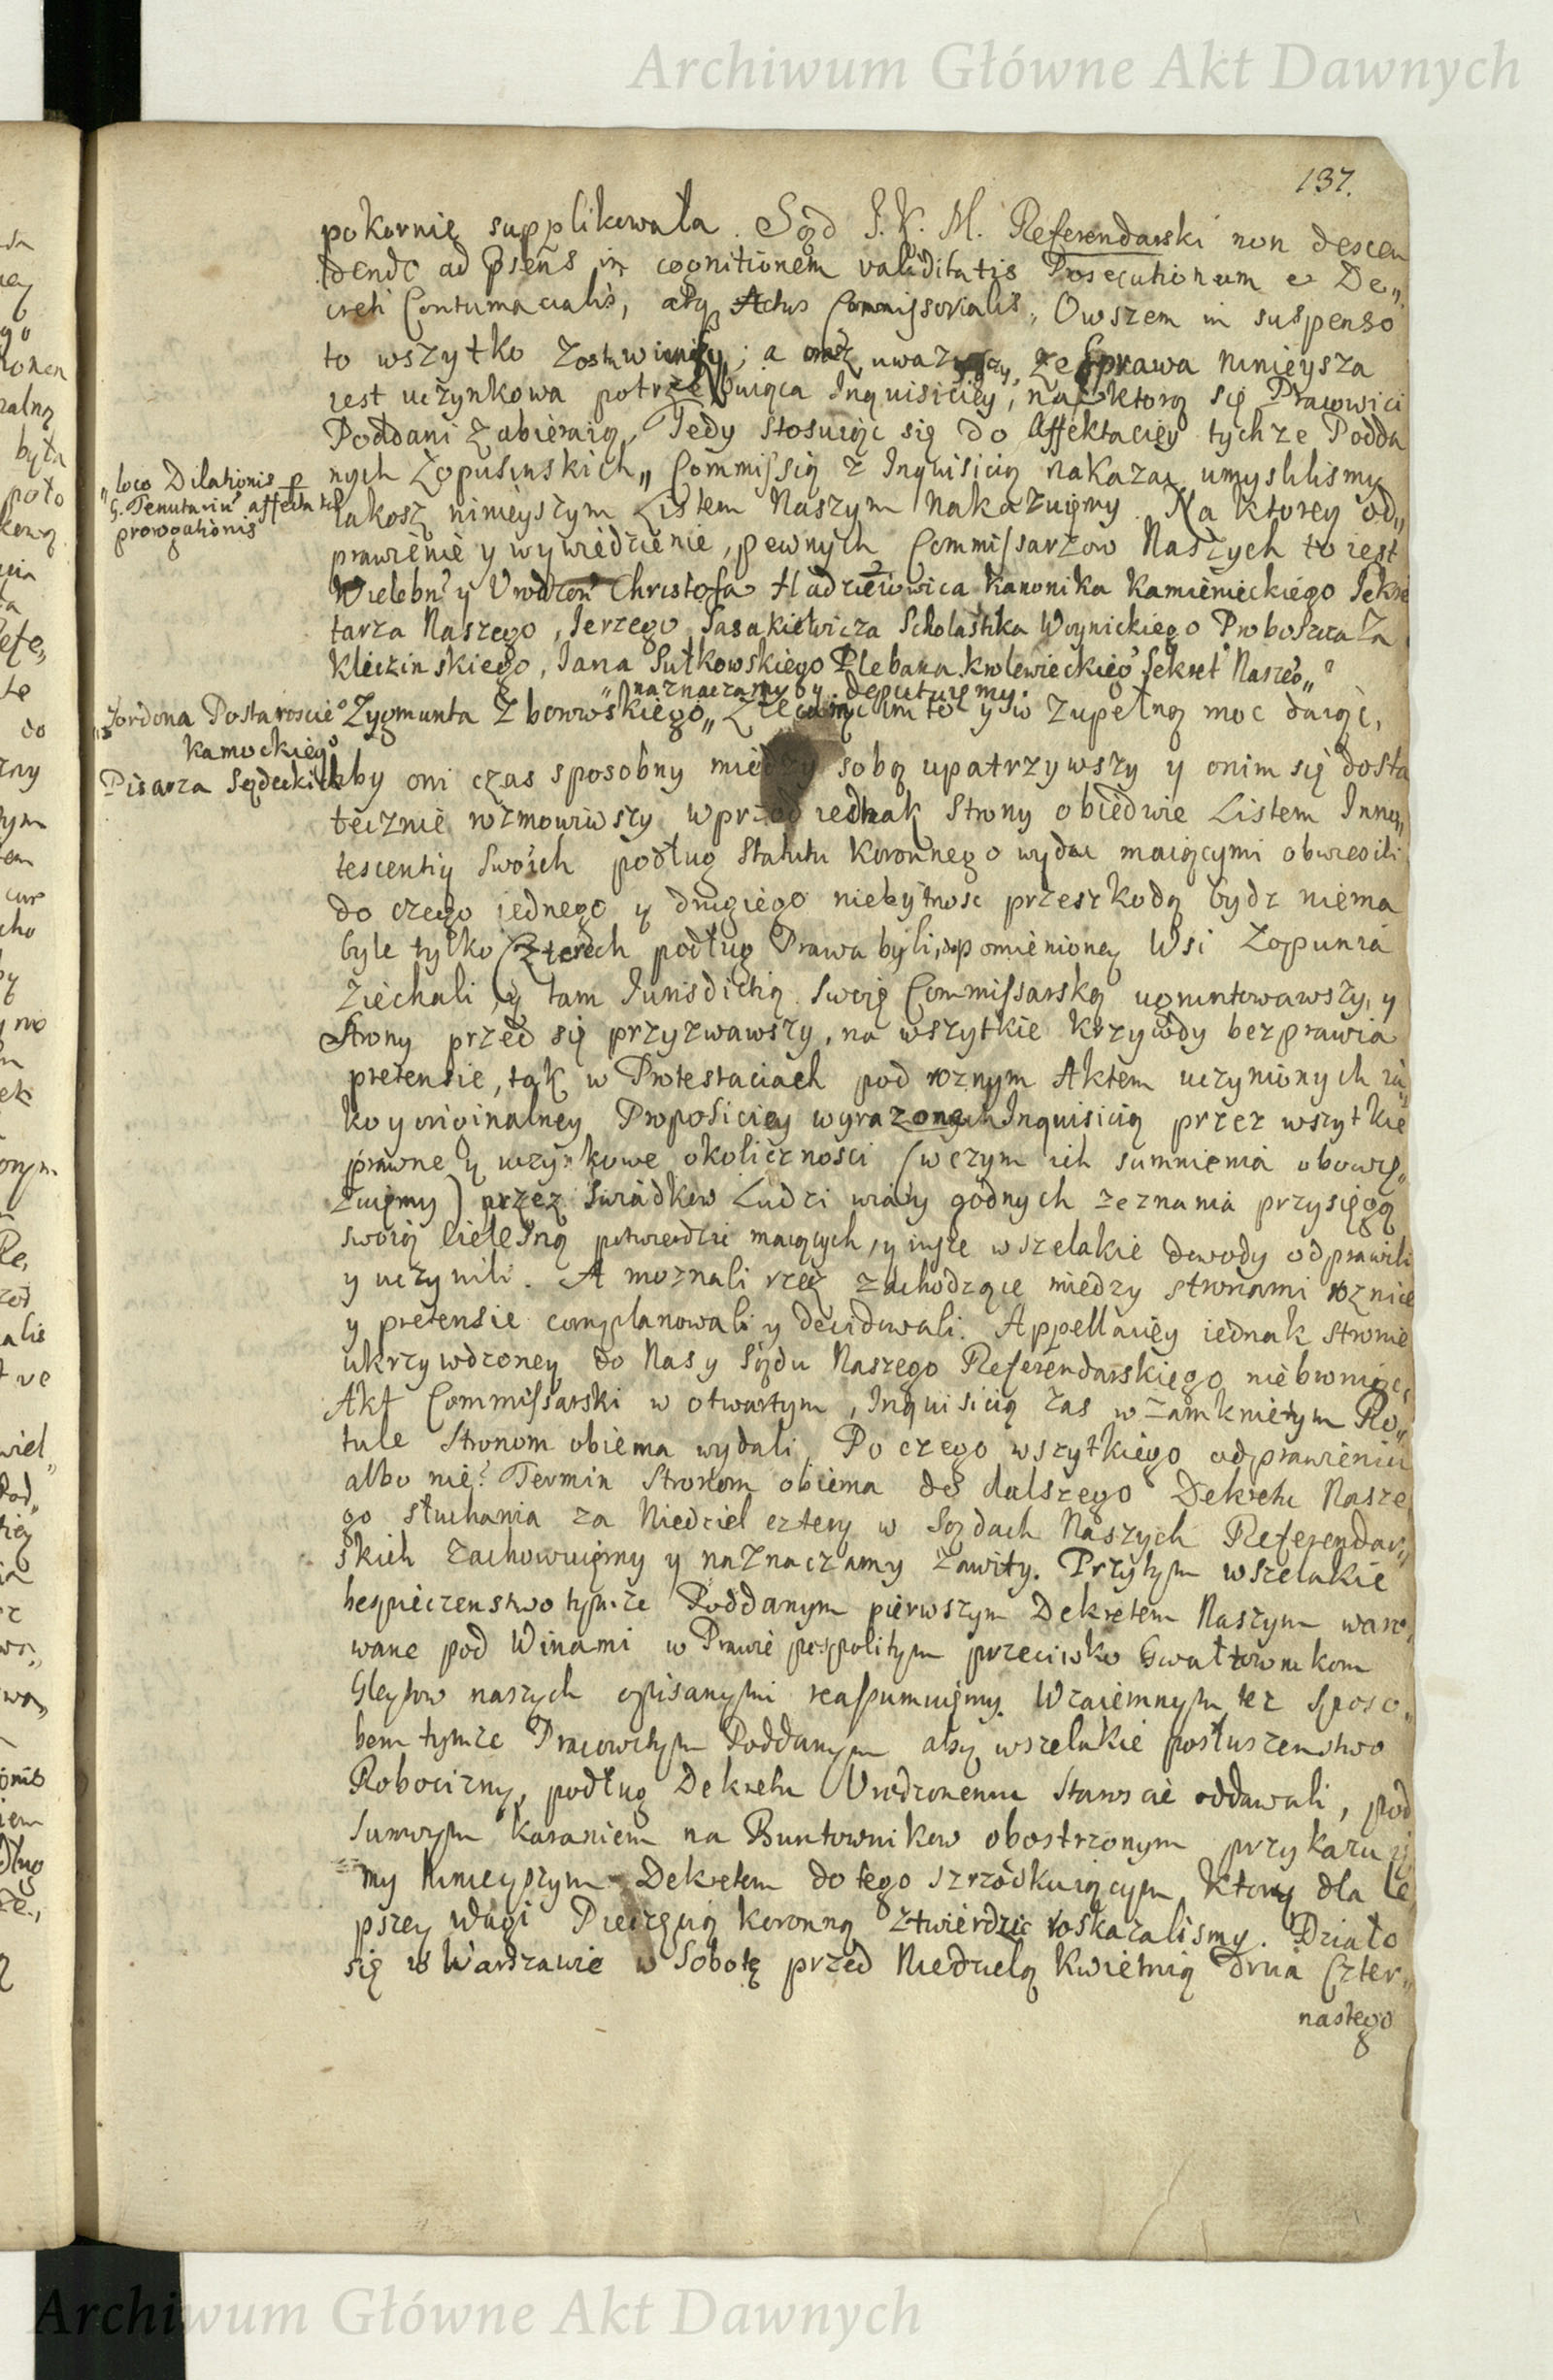 Archiwum Główne Akt Dawnych
137.
pokornie supplikowała. Sąd J. K. M. Referendarski non descen
dendo ad psens in cognitionem validitatis Prosecutionum e De„
creti Contumacialis, aby Actus Commissorialis, Owszem in suspenso
to wszytko zostawiwszy; a oraz uwazywszy, ze Sprawa ninieysza
iest uczynkowa potrzebuiąca Inquisiciey, na ktorą się Pracowici
Poddani zabieraią, Tedy stosuiąc się do affektaciey tychze Podda
nych Łopusinskich„ Commissią z Inquisicią nakazac umyslilismy
„loco Dilationis p
G. Tenutariu affecta
prorogationis
Iakosz ninieyszym Listem Naszym nakazuięmy. Na ktorey od„
prawienie y wywiedzienie, pewnych Commissarzow Naszych to iest
Wielebn y Urodzon Christofa Hadziewica Kanonika Kamienieckiego Sekre
tarza Naszego, Jerzego Sasakiewicza Scholastika Woynickiego Proboszcza Za
Kliczinskiego, Jana Sutkowskiego Plebana krolewieckieo Sekret Naszeo„
„naznaczamy y deputuięmy.
„Jordona Postaroscie Zygmunta Zborowskiego„ Zlecaiąc im to y w zupełną moc daiąc,
Kamockiego
Pisarza Sędeckich
aby oni czas sposobny między sobą upatrzywszy y onim się dosta
tecznie rozmowiwszy wprzod iednak Strony obiedwie Listem Inno„
tescentiy Swoich podług Statutu Koronnego wydac maiącymi obwiescili
do czego iednego y drugiego niebytnosc przeszkodą bydz niema
byle tylko Czterech podług Prawa byli, do pomienioney Wsi Łopunia
ziechali y tam Iurisdictią Swoię Commissarską ugruntowawszy, y
Strony przed się przyzwawszy, na wszytkie krzywdy bezprawia
pretensie, tak w Protestaciach pod roznym Aktem uczynionych ia„
ko y originalney Proposiciey wyrazonych Inquisicią przez wszytkie
prawne y uczynkowe okolicznosci (wczym ich sumnienia obowię„
zuięmy) przez Swiadkow Ludzi wiary godnych zeznania przysięgą
swoią cielesną potwierdzic maiących, y insze wszelakie dowody odprawili
y uczynili. A moznali rzecz zachodzące między stronami roznice
y pretensie complanowali y decidowali. Appellaciey iednak stronie
ukrzywdzoney do Nas y Sądu Naszego Referendarskiego niebroniąc,
Akt Commissarski w otwartym, Inquisicią zas w zamknietym Ro„
tule Stronom obiema wydali. Po czego wszytkiego odprawieniu
albo nie? Termin Stronom obiema do dalszego Dekretu Nasze
go słuchania za Niedziel cztery w Sądach Naszych Referendar„
skich zachowuięmy y naznaczamy zawity. Przytym wszelakie
bespieczenstwo tymze Poddanym pierwszym Dekretem Naszym waro„
wane pod Winami w Prawie pospolitym przeciwko Gwałtownikom
Gleytow naszych opisanymi reassumuięmy. Wzaiemnym tez sposo„
bem tymze Pracowitym Poddanym aby wszelakie posłuszenstwo
Robocizny, podług Dekretu Urodzonemu Staroscie oddawali, pod
surowym karaniem na Buntownikow obostrzonym przykazuię
my ninieyszym Dekretem do tego szrzodkuiącym Ktory dla le
pszey wagi Pieczęcią koronną ztwierdzic roskazalismy. Działo
się w Warszawie w Sobotę przed Niedzielą Kwietnią Dnia Czter„
nastego
Archiwum Główne Akt Dawnych